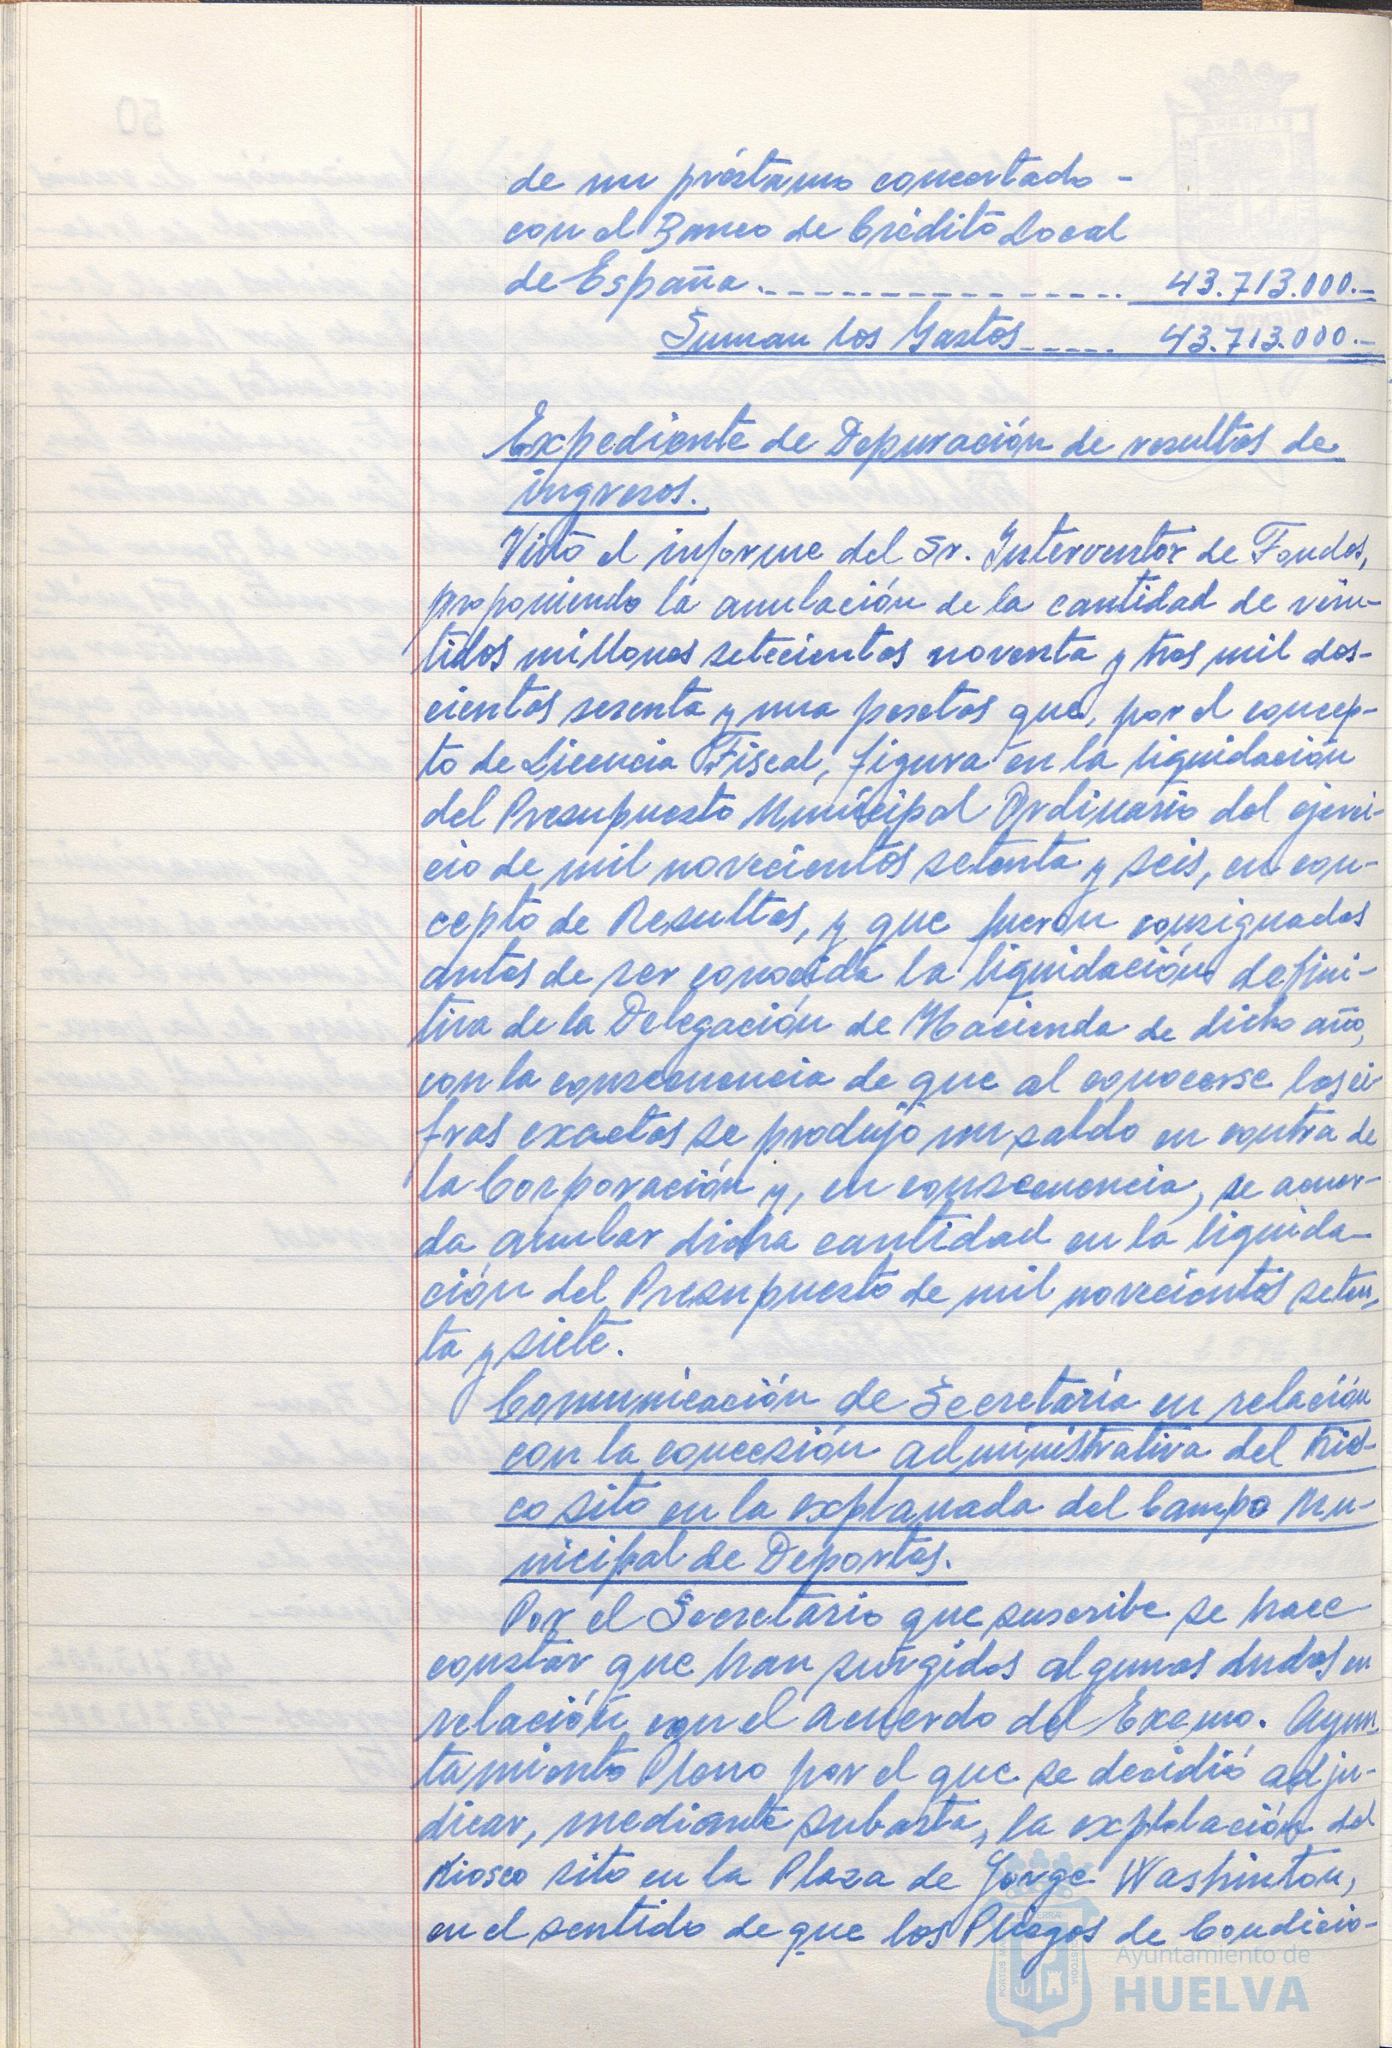 de un préstamo concertado -
con el Banco de Crédito Local
de España. 43.713.000.-
Suman los Gastos 43.713.000.-
Expediente de Depuración de resultas de
ingresos.
Visto el informe del Sr. Interventor de Fondos,
proponiendo la anulación de la cantidad de vein-
tidos millones setecientas noventa y tres mil dos-
cientas sesenta y una pesetas que, por el concep-
to de Licencia Fiscal, figura en la liquidación
del Presupuesto Municipal Ordinario del ejerci-
cio de mil novecientos setenta y seis, en con-
cepto de Resultas, y que fueron consignadas
antes de ser conocida la liquidación defini-
tiva de la Delegación de Hacienda de dicho año,
con la consecuencia de que al conocerse las ci-
fras exactas se produjo un saldo en contra de
la Corporación y, en consecuencia, se acuer-
da anular dicha cantidad en la liquida-
ción del Presupuesto de mil novecientos seten-
ta y siete.
Comunicación de Secretaría en relación
con la concesión administrativa del Kios-
co sito en la explanada del Campo Mu-
nicipal de Deportes.
Por el Secretario que suscribe se hace
constar que han surgidos algunas dudas en
relación con el acuerdo del Excmo. Ayun-
tamiento Pleno por el que se decidió adju-
dicar, mediante subasta, la explotación del
Kiosco sito en la Plaza de Jorge Washinton,
en el sentido de que los Pliegos de Condicio-
Ayuntamiento de
HUELVA